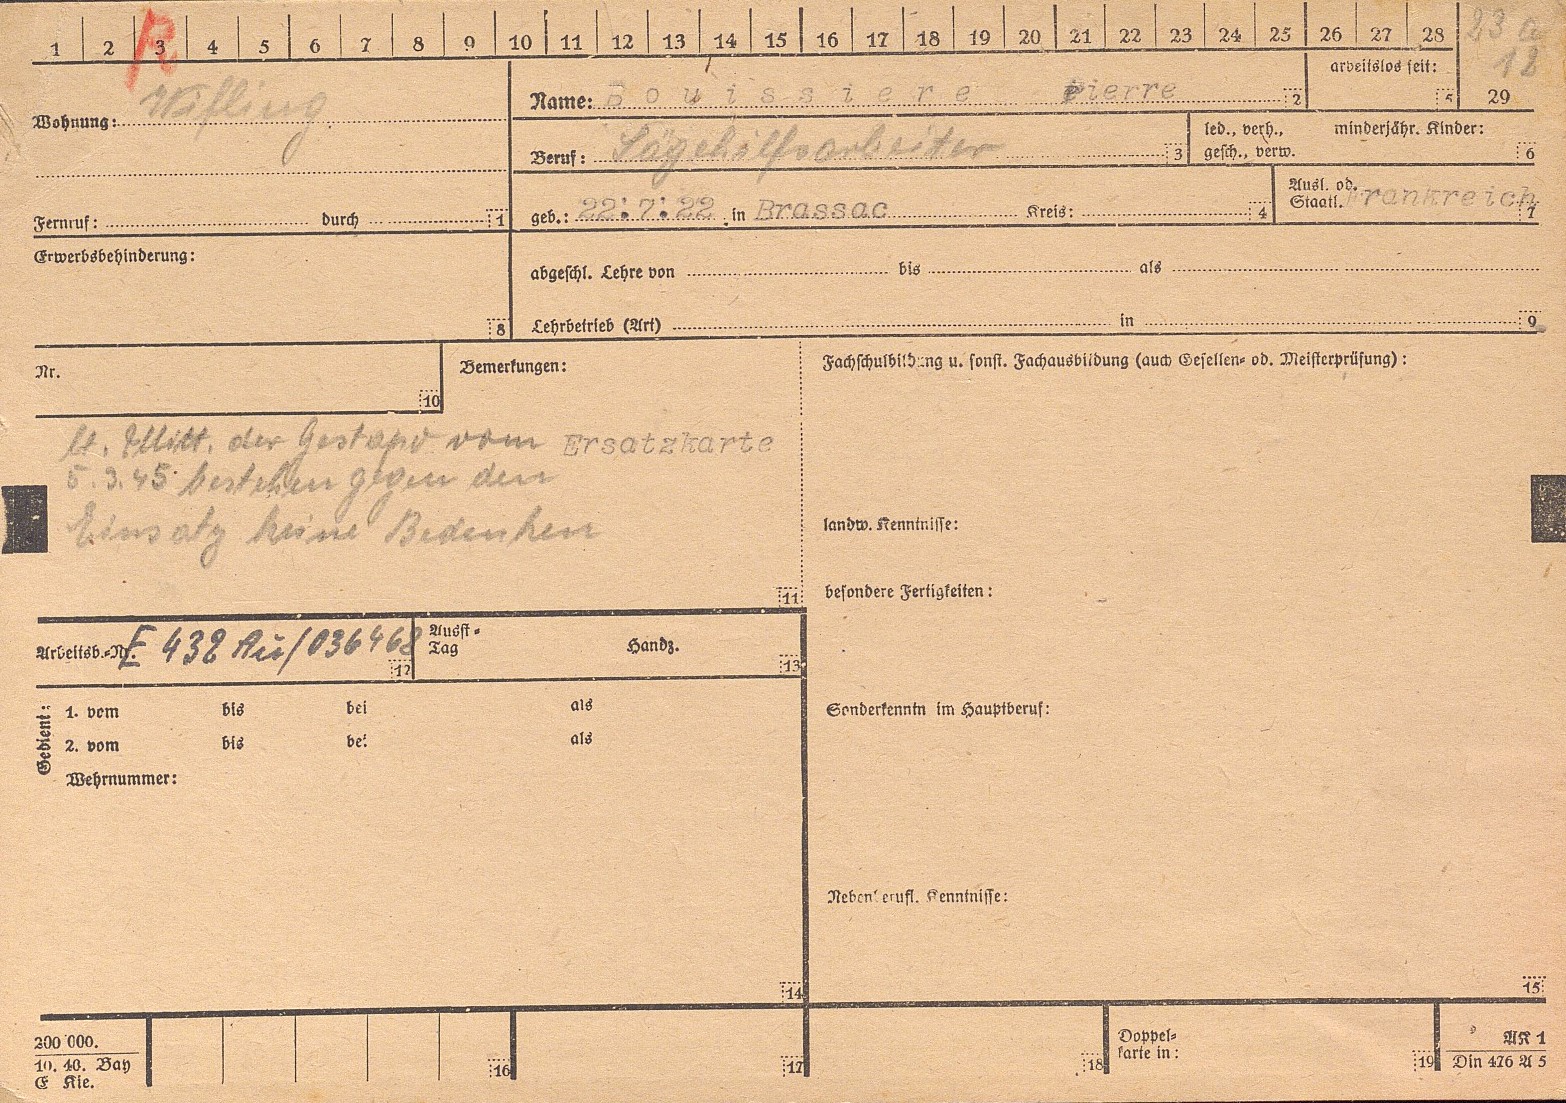 1 2 3 4 5 6 7 8 9 10 11 12 13 14 15 16 17 18 19 20 21 22 23 24 25 26 27 28
R
23 a
18
29
Wohnung: Wifling
Name: Bouissiere Pierre 2
arbeitslos seit: 5
Beruf: Sägehilfsarbeiter 3
led., verh., minderjähr. Kinder:
gesch., verw. 6
Fernruf: durch 1
geb.: 22.7.22 in Brassac Kreis: 4
Ausl. od.
Staatl. Frankreich 7
Erwerbsbehinderung: 8
abgeschl. Lehre von bis als
Lehrbetrieb (Art) in 9
Nr. 10
Bemerkungen:
lt. Mitt. der Gestapo vom Ersatzkarte
5.3.45 bestehen gegen den
Einsatz keine Bedenken
11
Fachschulbildung u. sonst. Fachausbildung (auch Gesellen- od. Meisterprüfung):
landw. Kenntnisse:
besondere Fertigkeiten:
Sonderkenntn im Hauptberuf:
Nebenberufl. Kenntnisse:
15
Arbeitsb.-Nr. E 432 Au/036468 12
Ausst-
Tag Handz. 13
Gedient:
1. vom bis bei als
2. vom bis bei als
Wehrnummer:
14
200 000.
10. 40. Bay
E Kie.
16
17
18
Doppel-
karte in: 19
AK 1
Din 476 A 5